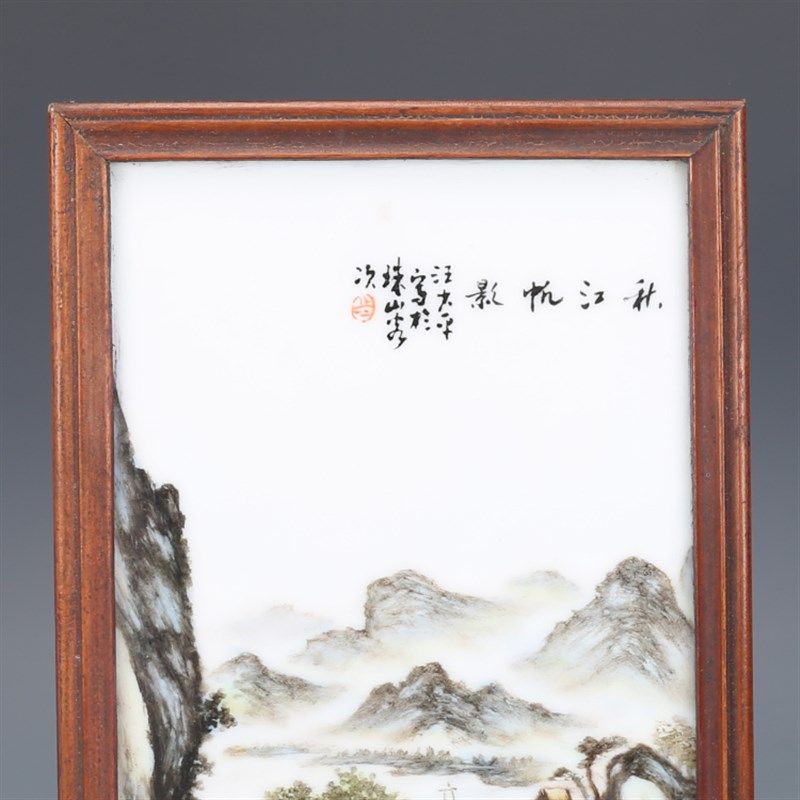 秋江帆影
汪大平
写於
珠山客
次